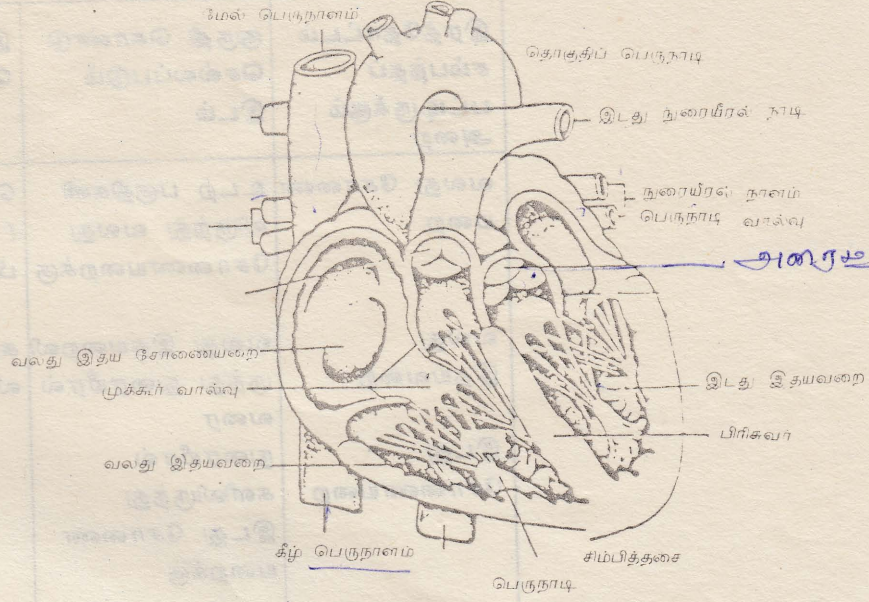 மேல் பெருநாளம்
தொகுதிப் பெருநாடி
இடது நுரையீரல் நாடி
நுரையீரல் நாளம்
பெருநாடி வால்வு
வலது இதய சோணையறை
முக்கூர் வால்வு
இடது இதயவறை
பிரிசுவர்
வலது இதயவறை
கீழ் பெருநாளம்
சிம்பித்தசை
பெருநாடி